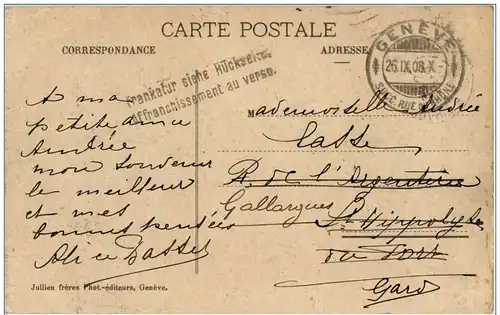 CARTE POSTALE
CORRESPONDANCE
ADRESSE
GENÈVE
26.IX.08.X-
Frankatur siehe Rückseite.
Affranchissement au verso.
A ma
petite amie
Andrée
mon souvenir
le meilleur
et mes
bonnes pensées
Alice
Mademoiselle Andrée
R. de l'Argenterie
Gallargues
St Hippolyte
du Fort
Gard
Jullien frères Phot.-éditeurs, Genève.